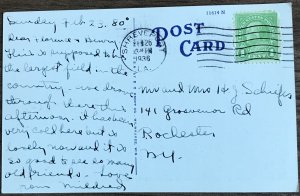 Sunday Feb 23. 80°
Dear Florence & Henry
This is supposed to be
the largest field in the
country. we drove
through there this
afternoon. it has been
very cold here but is
lovely now and it is
so good to see so many
old friends. Love
from Mildred
POST
CARD
11614 N
SHREVEPORT
FEB 25
PM
1936
Mr and Mrs H J Schiefer
141 Grosvenor Rd
Rochester
N.Y.